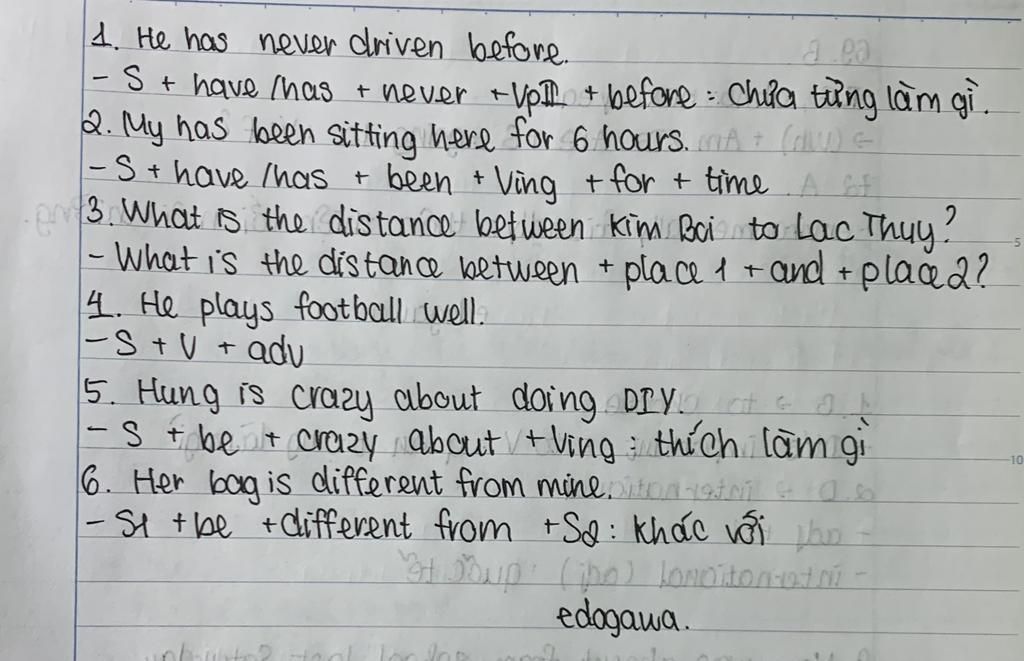 1. He has never driven before.
- S + have /has + never + VpIII + before : chưa từng làm gì.
2. My has been sitting here for 6 hours.
- S + have /has + been + Ving + for + time
3. What is the distance between Kim Boi to Lac Thuy?
- What is the distance between + place 1 + and + place 2?
4. He plays football well.
- S + V + adv
5. Hung is crazy about doing DIY.
- S + be + crazy about + Ving : thích làm gì
6. Her bag is different from mine.
- S1 + be + different from + S2 : khác với
edogawa.